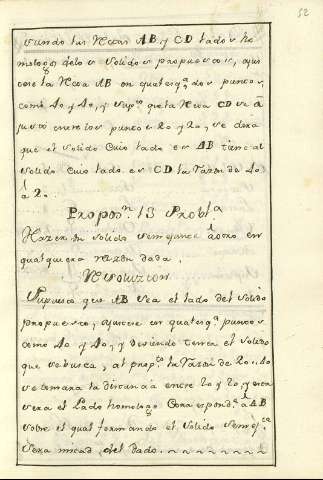 52
viendo las Rectas AB y CD lados ho
mologos de los solidos propuestos, ajus
tese la Recta AB en qualesq.ª dos puntos,
como 40 y 40, y sup.to que la Recta CD se a
juste entre los puntos 20 y 20, se dira
que el solido cuio lado es AB tiene al
solido cuio lado es CD la razon de 40
á 20.
Propos.n 13 Probl.a
Hazer un solido semejante á otro en
qualquiera razon dada.
Resoluzion
Supuesto que AB sea el lado del solido
propuesto, ajustese en qualesq.a puntos
como 40 y 40, y deviendo tener el solido
que se busca, al prop.to la razon de 20 á 40
se tomara la distancia entre 20 y 20, y esta
sera el Lado homologo Correspond.te á AB
sobre el qual formando el solido semej.te
sera mitad, del dado.